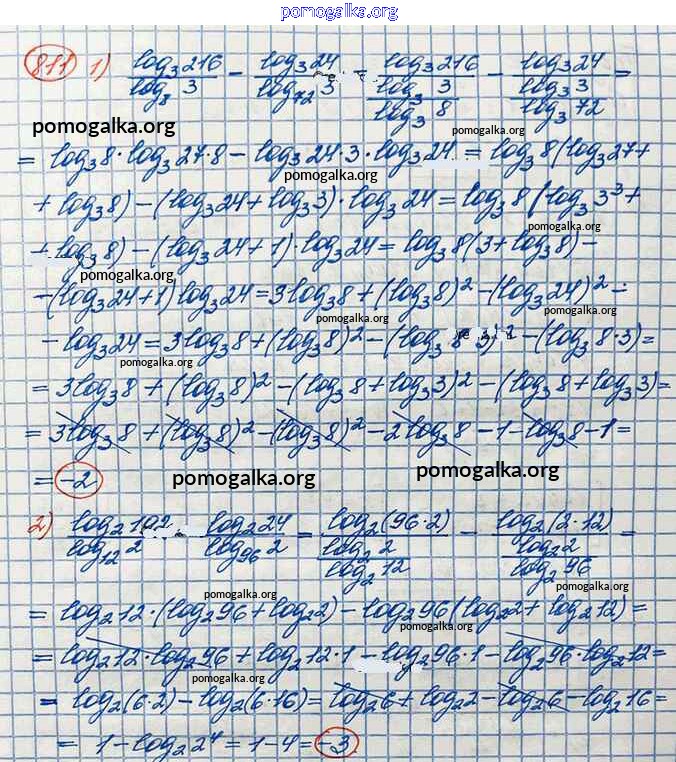 pomogalka.org
811 1) log₃216/log₈3 − log₃24/log₇₂3 = log₃216/(log₃3/log₃8) − log₃24/(log₃3/log₃72) =
pomogalka.org
pomogalka.org
= log₃8·log₃27·8 − log₃24·3·log₃24 = log₃8(log₃27+
pomogalka.org
+ log₃8) − (log₃24 + log₃3)·log₃24 = log₃8(log₃3³+
pomogalka.org
+ log₃8) − (log₃24+1)·log₃24 = log₃8(3+log₃8) −
pomogalka.org
−(log₃24+1)log₃24 = 3log₃8 + (log₃8)² − (log₃24)² −
pomogalka.org
− log₃24 = 3log₃8 + (log₃8)² − (log₃8·3)² − (log₃8·3) =
pomogalka.org
= 3log₃8 + (log₃8)² − (log₃8 + log₃3)² − (log₃8 + log₃3) =
pomogalka.org
= 3log₃8 + (log₃8)² − (log₃8)² − 2log₃8 − 1 − log₃8 − 1 =
= −2
pomogalka.org
pomogalka.org
2) log₂192/log₁₂2 − log₂24/log₉₆2 = log₂(96·2)/(log₂2/log₂12) − log₂(2·12)/(log₂2/log₂96) =
pomogalka.org
pomogalka.org
= log₂12·(log₂96+log₂2) − log₂96(log₂2 + log₂12) =
pomogalka.org
= log₂12·log₂96 + log₂12·1 − log₂96·1 − log₂96·log₂12 =
pomogalka.org
= log₂(6·2) − log₂(6·16) = log₂6 + log₂2 − log₂6 − log₂16 =
= 1 − log₂2⁴ = 1 − 4 = −3
pomogalka.org